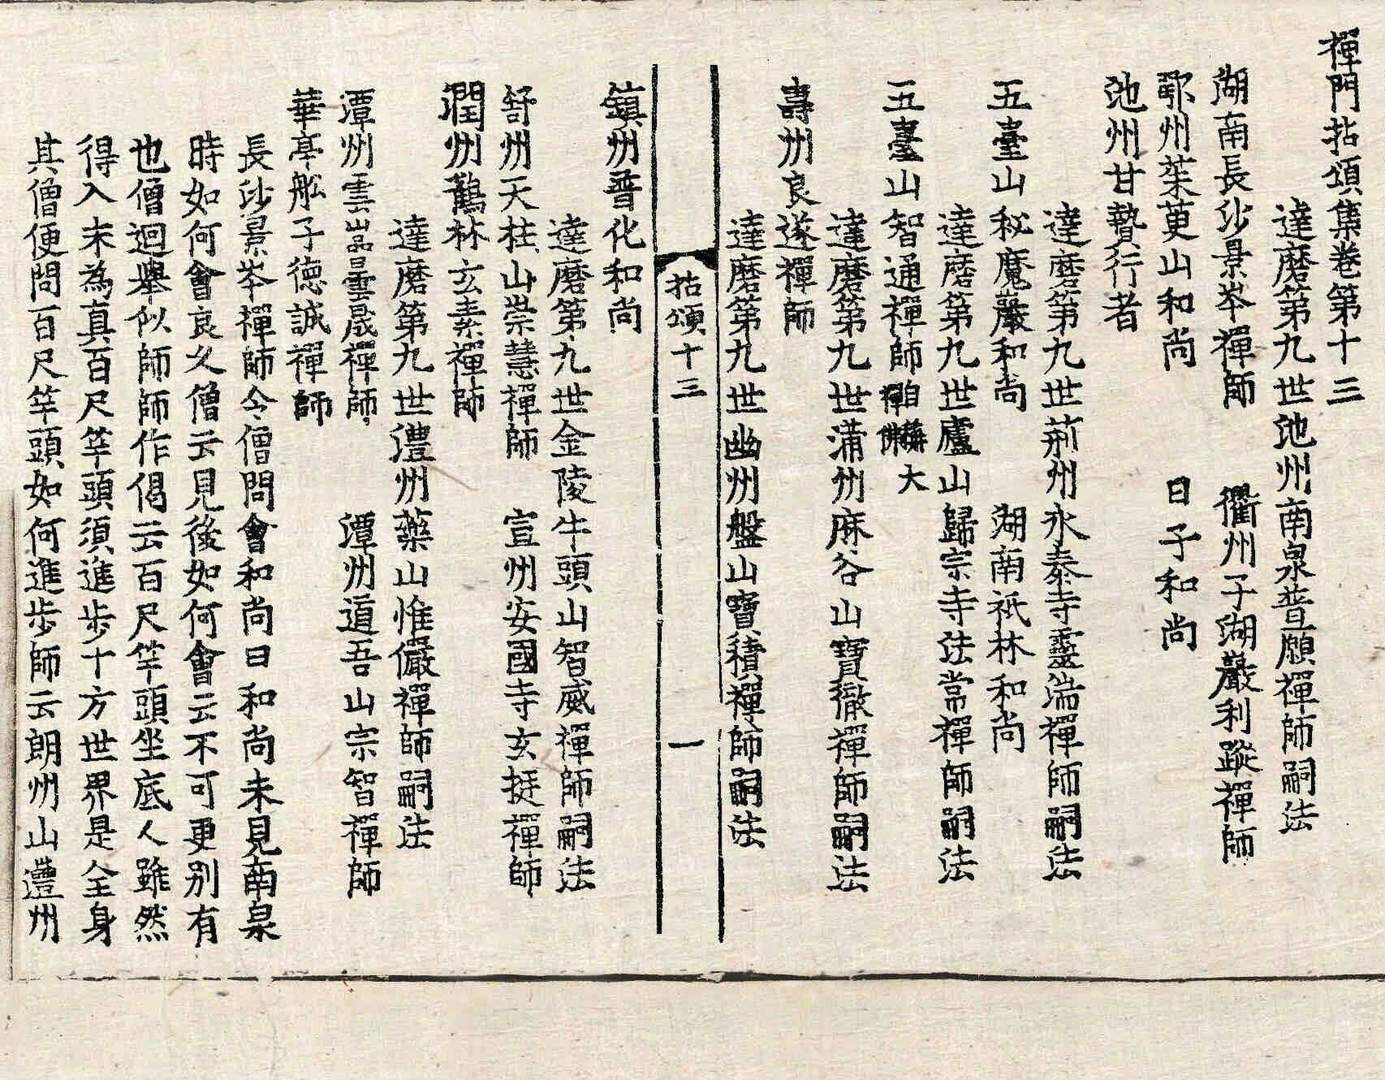 禪門拈頌集卷第十三
達磨第九世池州南泉普願禪師嗣法
湖南長沙景岑禪師 衢州子湖巖利蹤禪師
鄂州茱萸山和尚 日子和尚
池州甘贄行者
達磨第九世荊州永泰寺靈湍禪師嗣法
五臺山秘魔巖和尚 湖南祇林和尚
達磨第九世廬山歸宗寺法常禪師嗣法
五臺山智通禪師自稱大禪佛
達磨第九世蒲州麻谷山寶徹禪師嗣法
壽州良遂禪師
達磨第九世幽州盤山寶積禪師嗣法
拈頌十三 一
鎮州普化和尚
達磨第九世金陵牛頭山智威禪師嗣法
舒州天柱山崇慧禪師 宣州安國寺玄挺禪師
潤州鶴林玄素禪師
達磨第九世澧州藥山惟儼禪師嗣法
潭州雲嵓曇晟禪師 潭州道吾山宗智禪師
華亭舩子德誠禪師
長沙景岑禪師令僧問會和尚曰和尚未見南泉
時如何會良久僧云見後如何會云不可更別有
也僧迴舉似師師作偈云百尺竿頭坐底人雖然
得入未為真百尺竿頭須進步十方世界是全身
其僧便問百尺竿頭如何進步師云朗州山灃州